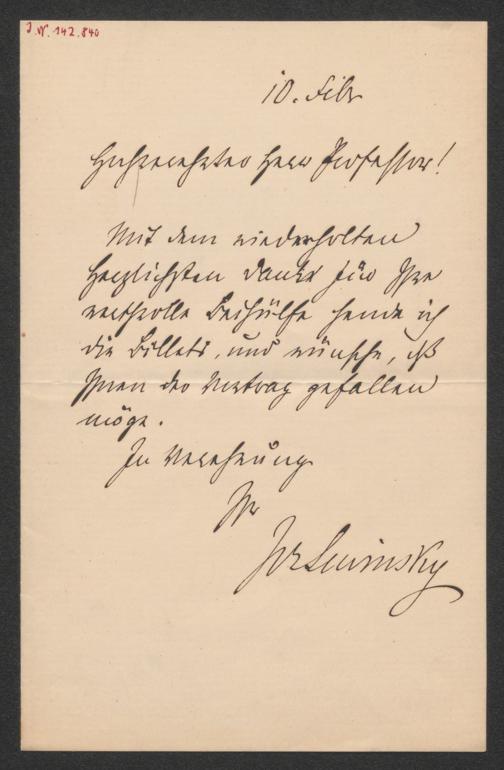 J.N. 142.840
10. Febr
Hochverehrter Herr Professor!
Mit dem wiederholten
herzlichsten Danke für Ihre
werthvolle Beihülfe sende ich
die Billets, und wünsche, dß
Ihnen der Vortrag gefallen
möge.
In Verehrung
Ihr
Jos Lewinsky